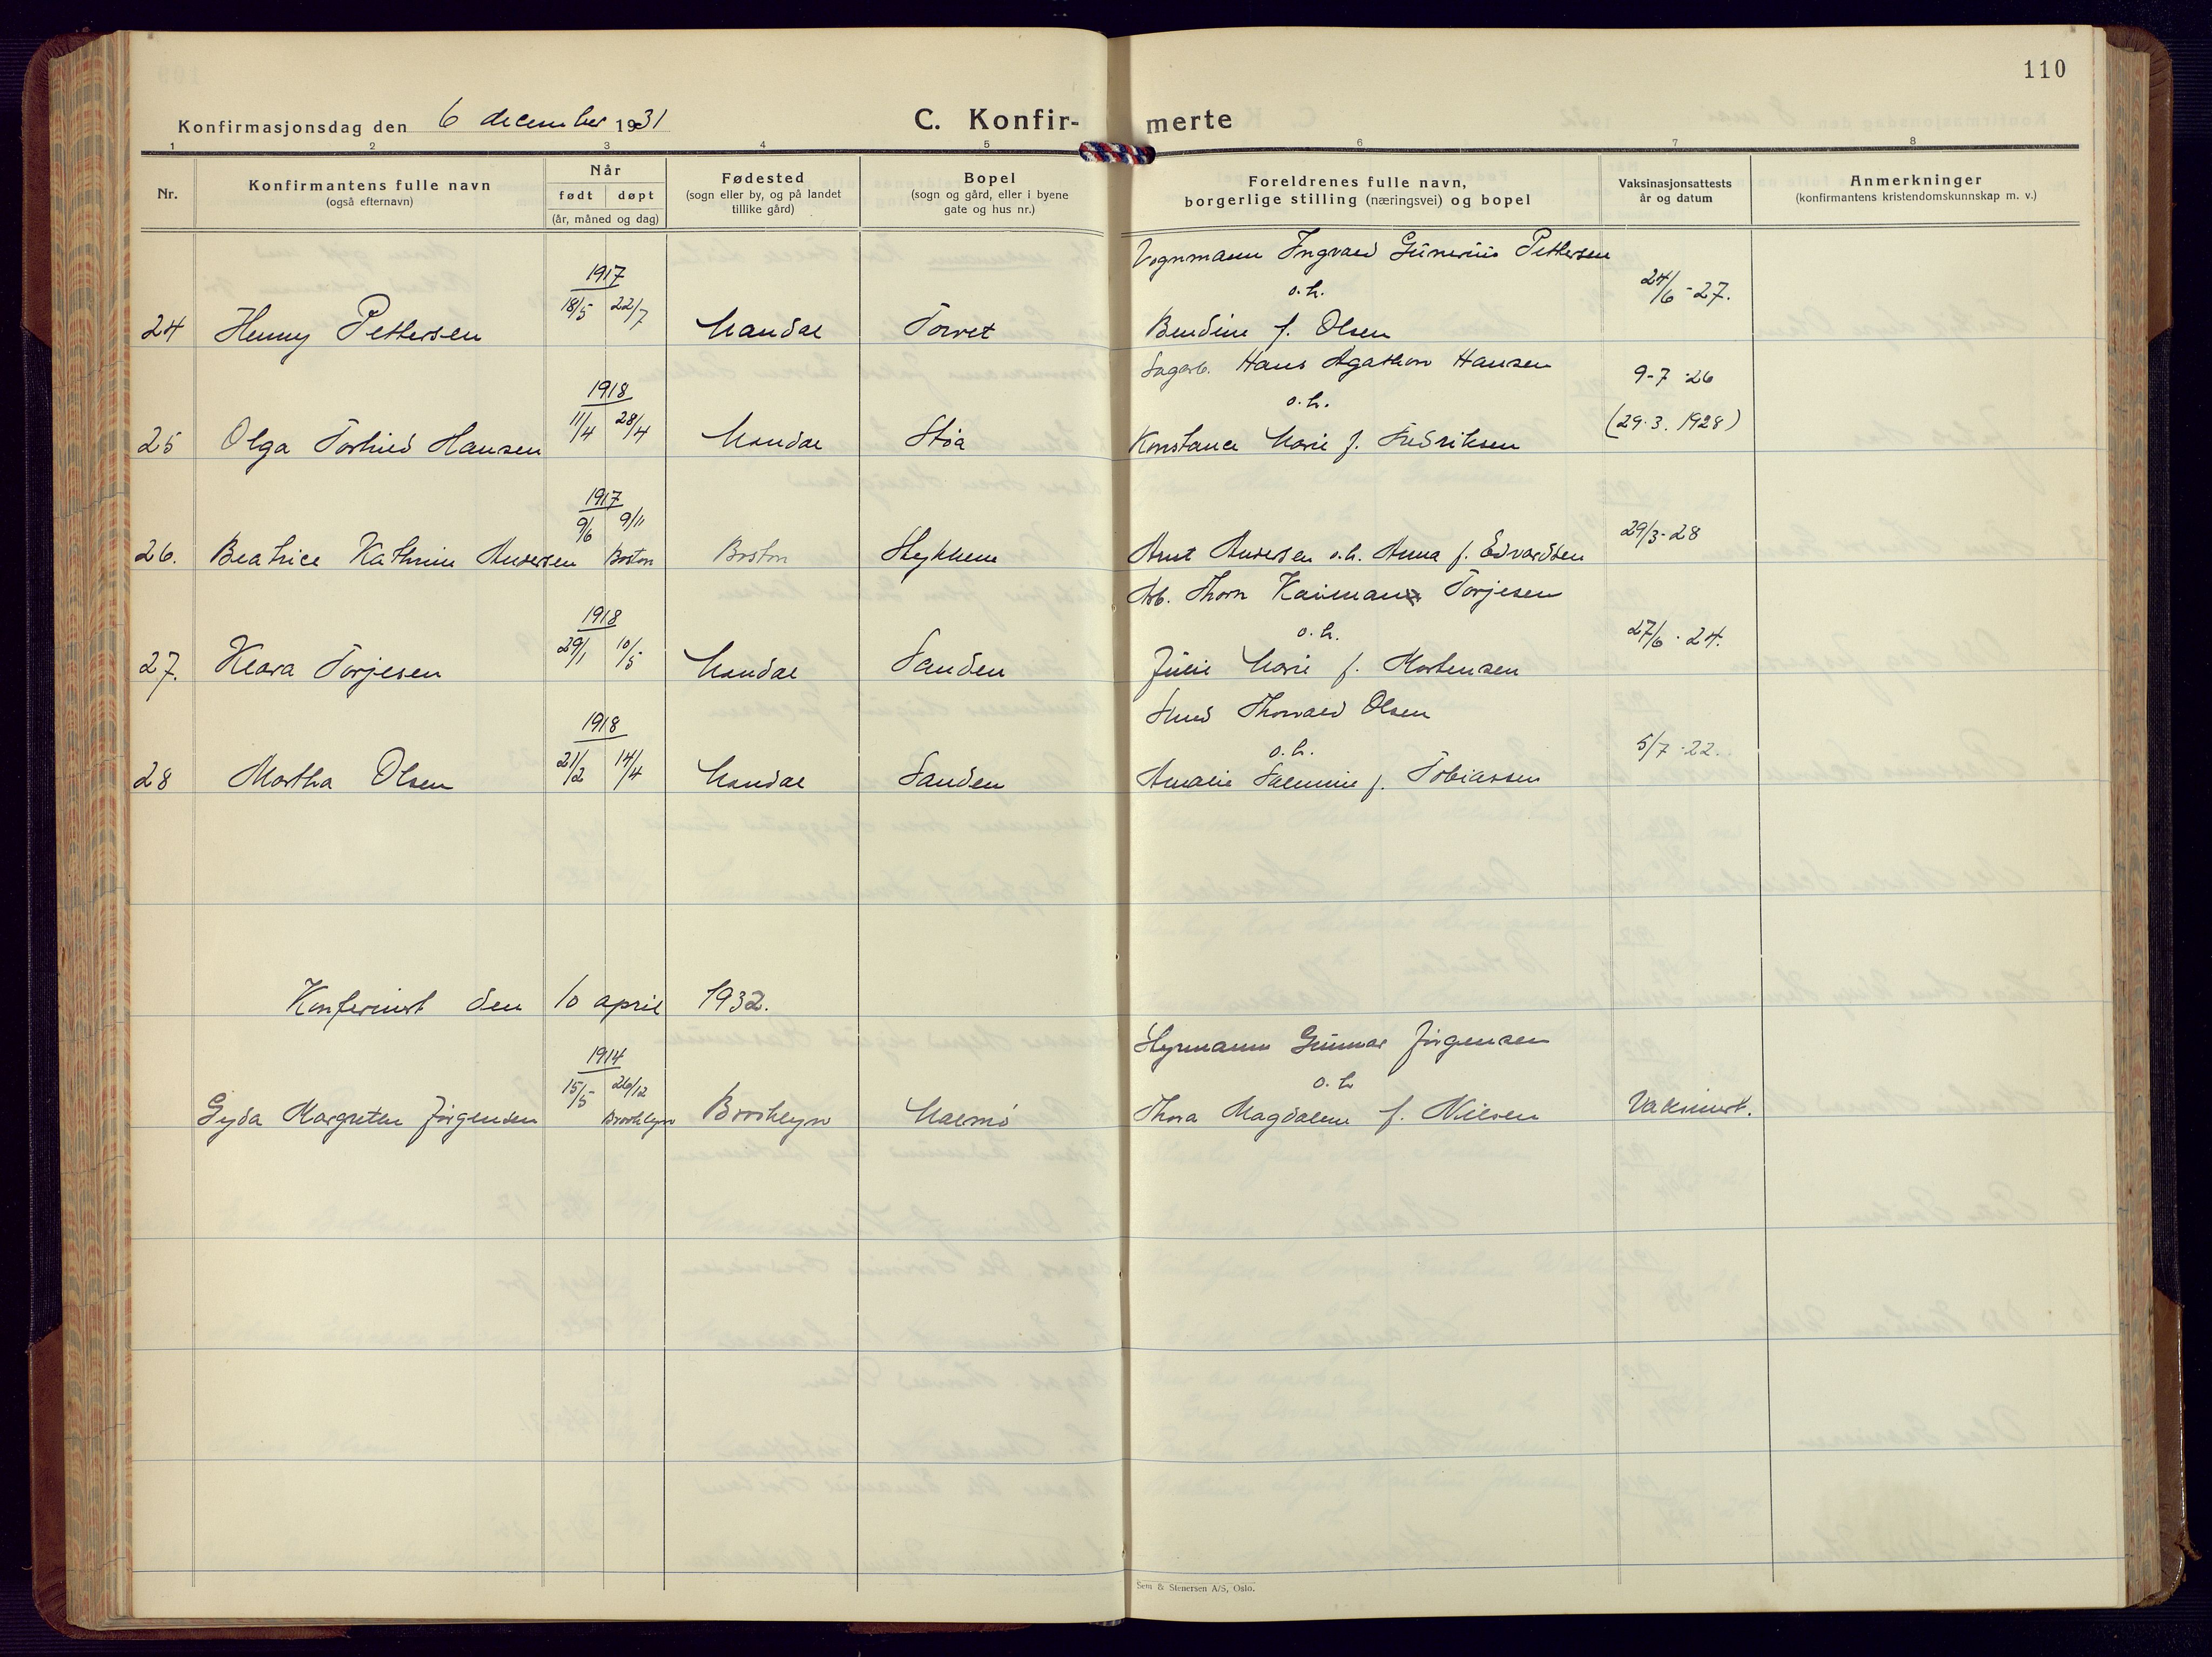 110
Konfirmasjonsdag den 6 december 1931
C. Konfir- merte
1 2 3 4 5 6 7 8
Nr.
Konfirmantens fulle navn
(også efternavn)
Når
født døpt
(år, måned og dag)
Fødested
(sogn eller by, og på landet
tillike gård)
Bopel
(sogn og gård, eller i byene
gate og hus nr.)
Foreldrenes fulle navn,
borgerlige stilling (næringsvei) og bopel
Vaksinasjonsattests
år og datum
Anmerkninger
(konfirmantens kristendomskunnskap m. v.)
Vognmann Ingvald Gunerius Pettersen
1917
18/5 22/7
o.h.
24/6-27.
24 Henny Pettersen Mandal Torvet Bendine f. Olsen
Sagarb. Hans Agathon Hansen
1918
9-7-26
11/4 28/4
o.h.
(29.3.1928)
25 Olga Torhild Hansen Mandal Støa Konstance Marie f. Fredriksen
1917
9/6 9/11
29/3-28
26. Beatrice Kathrine Andersen Boston Boston Stykkene Arnt Andersen o.h. Anna f. Edvardsen
Arb. Thorn Torjesen
1918
29/1 10/5
o.h.
27/6-24.
27. Klara Torjesen Mandal Sanden Julie Marie f. Mortensen
Smed Thorvald Olsen
1918
21/2 14/4
o.h.
5/7-22.
28 Martha Olsen Mandal Sanden Amalie Salmine f. Tobiassen
Konfermert den 10 april 1932.
Styrmann Gunnar Jørgensen
1914
15/5 26/12
o.h
Gyda Margrethe Jørgensen Brooklyn Brooklyn Malmø Thora Magdalene f. Nielsen Vaksinert.
Sem & Stenersen A/S, Oslo.